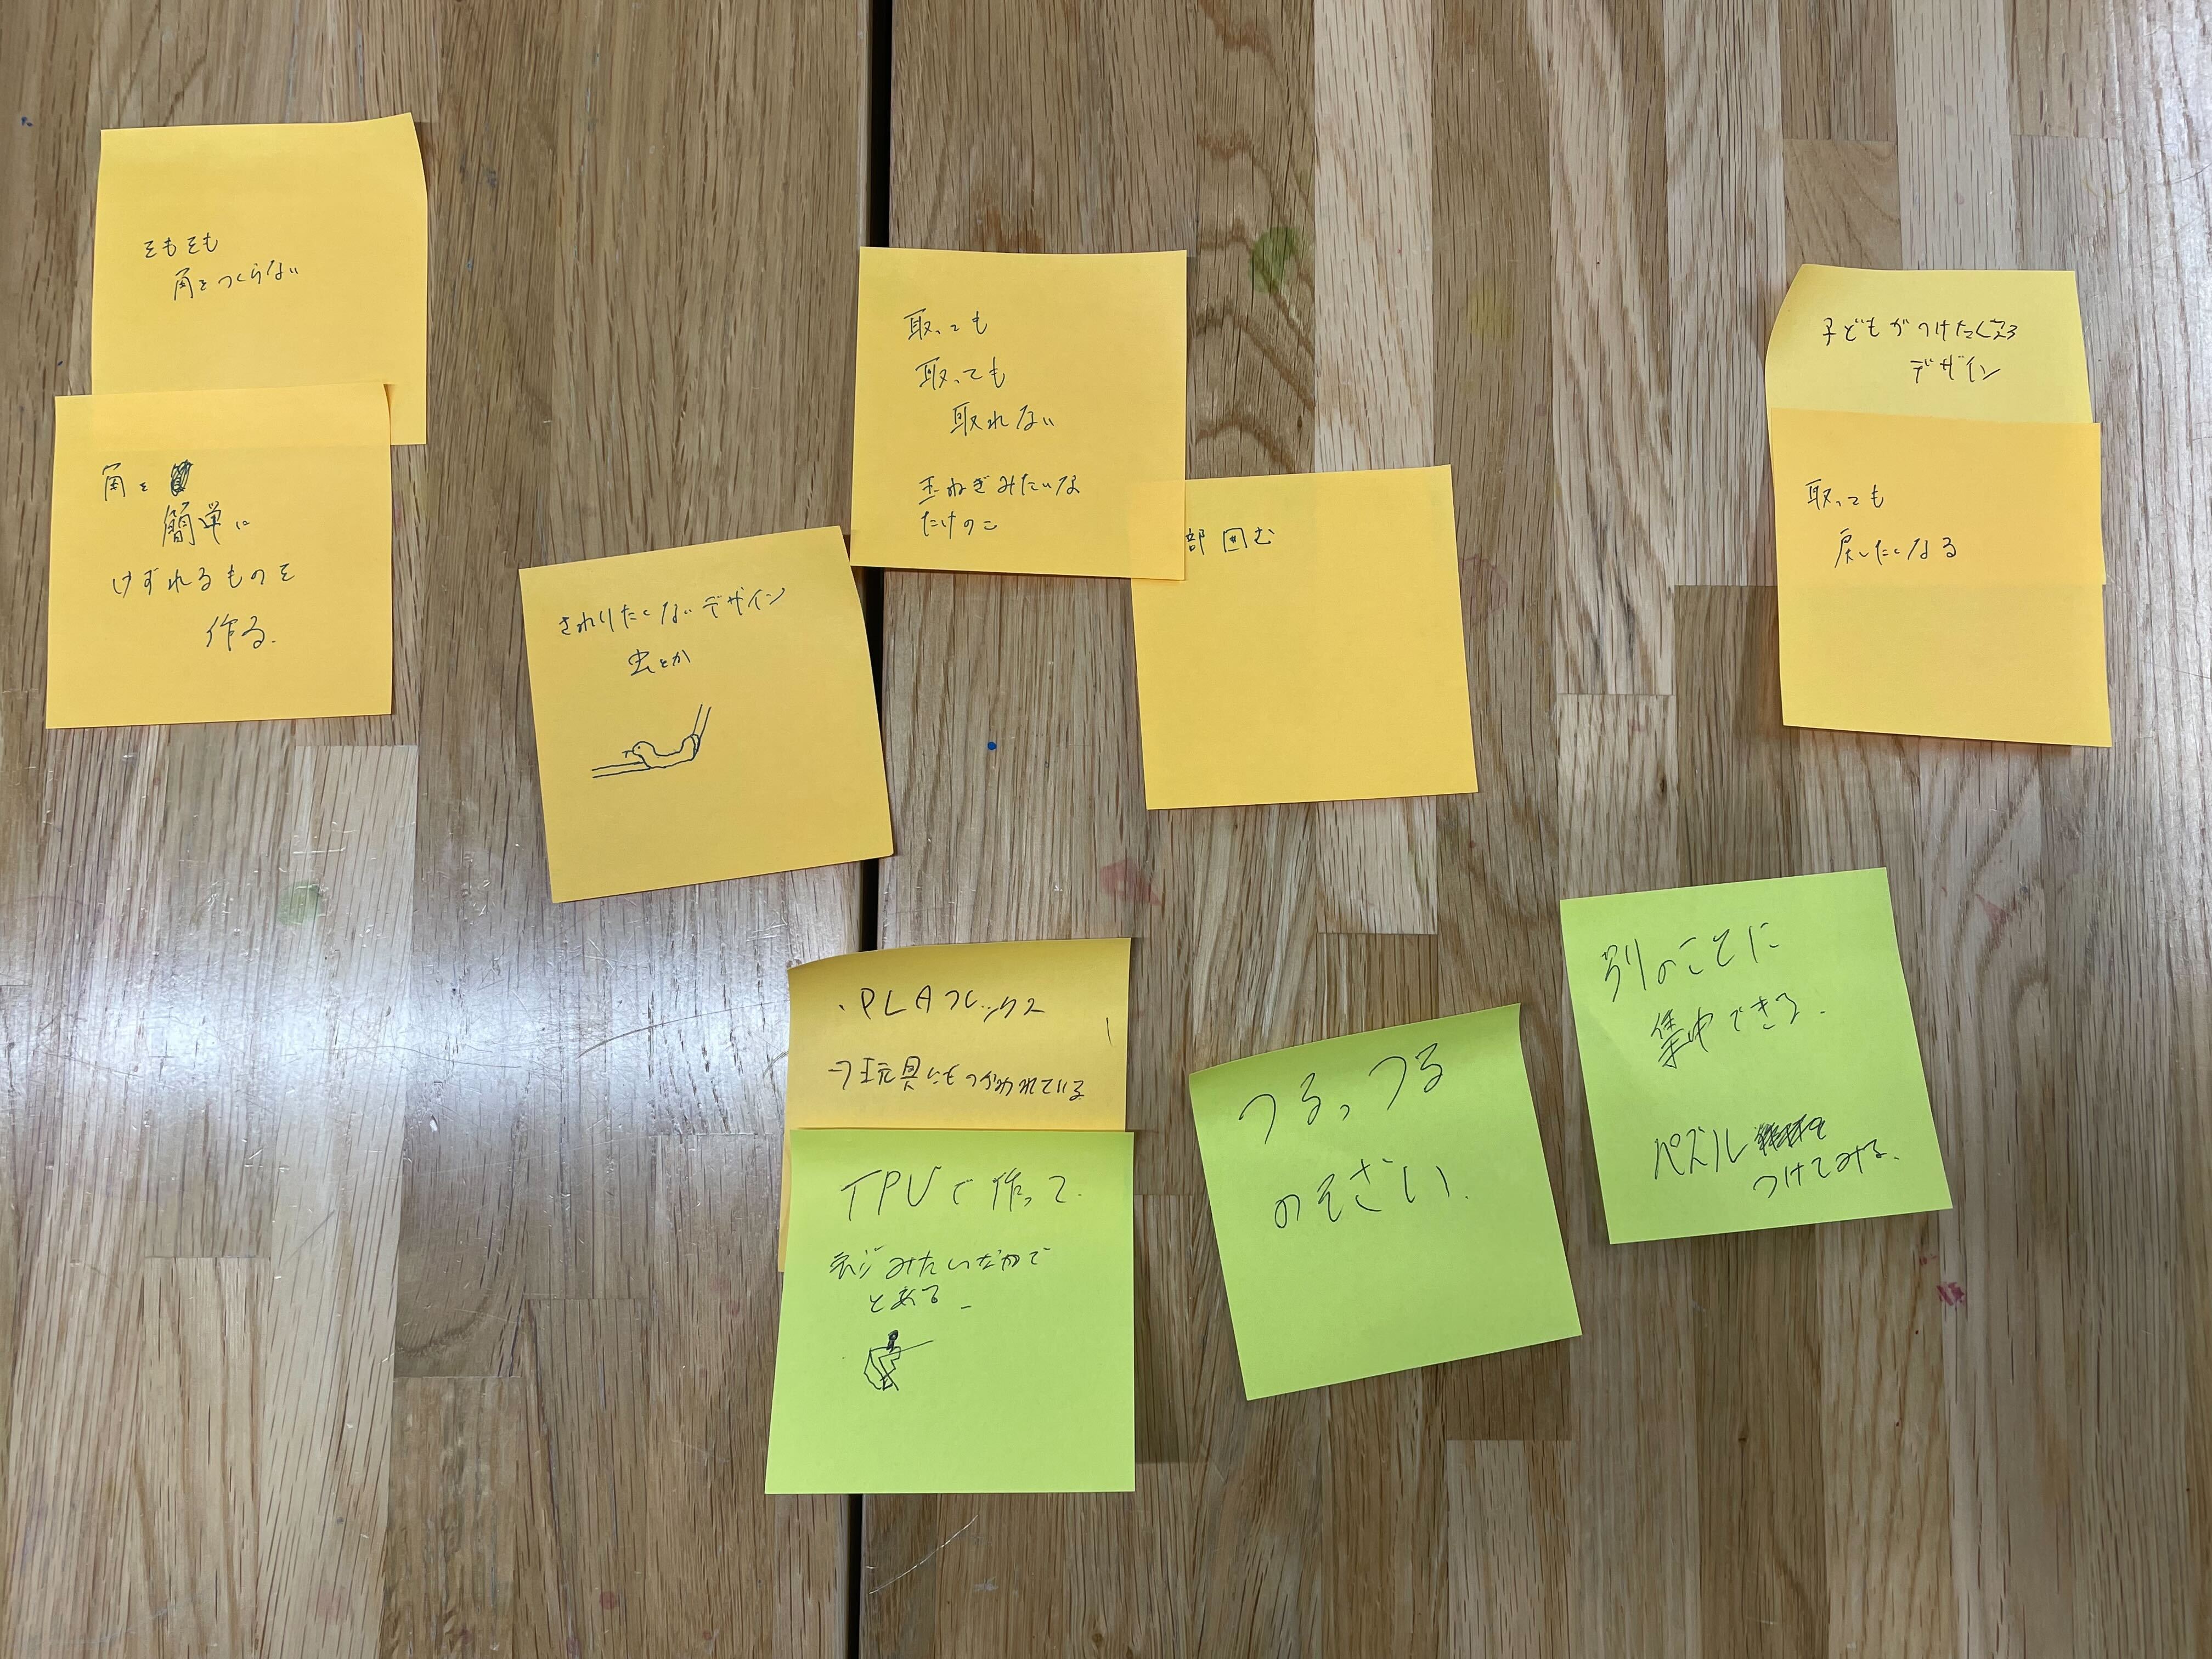 そもそも
角をつくらない
角を
簡単に
けずれるものを
作る.
さわりたくないデザイン
虫とか
取っても
取っても
取れない
玉ねぎみたいな
たけのこ
部囲む
子どもがつけたくなる
デザイン
取っても
戻したくなる
・PLAフレックス
→玩具にもつかわれている
TPUで作って.
ネジみたいなので
とめる
つるっつる
のそざい.
別のことに
集中できる.
パズル
つけてみる.